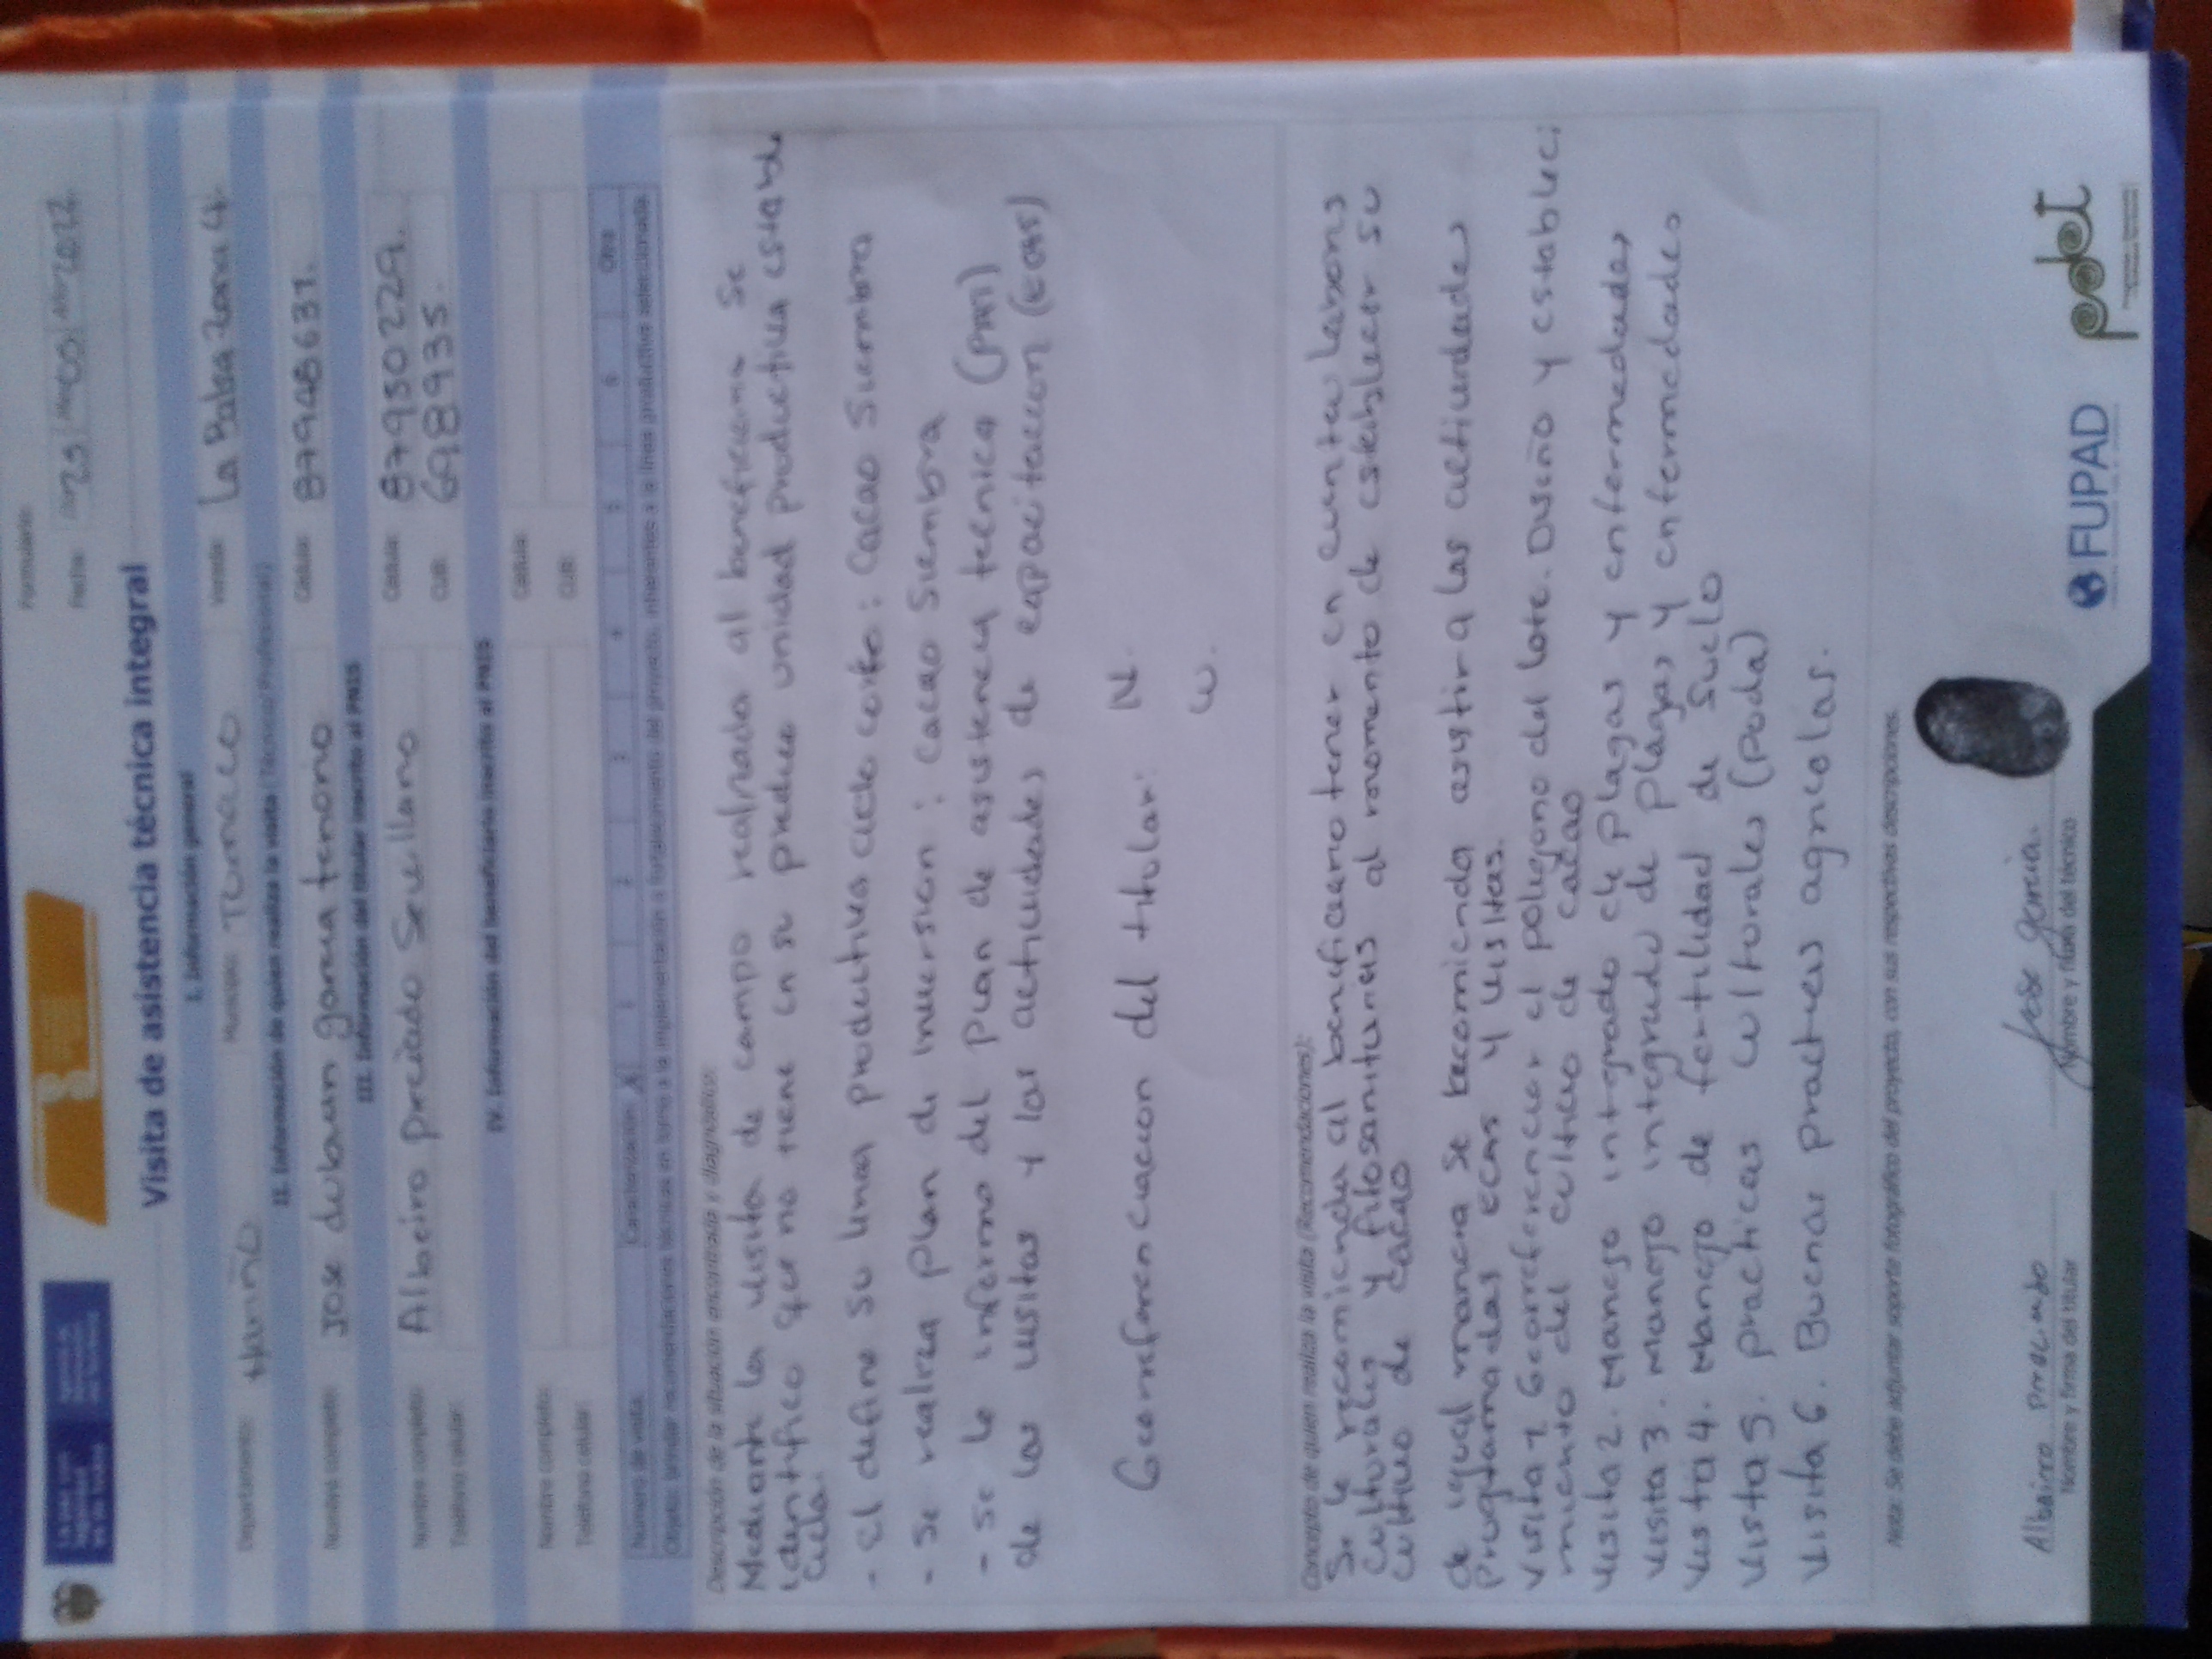 Formulario:
Fecha:
Visita de asistencia técnica integral
I. Información general
Departamento: Nariño Municipio: Tumaco Vereda: La Balsa Zona 4
II. Información de quien realiza la visita (Técnico/Profesional)
Nombre completo: Jose duban garcia tenorio Cédula: 87948631.
III. Información del titular inscrito al PNIS
Nombre completo: Albeiro preciado Sevillano Cédula: 87950229.
Teléfono celular: CUB: 698935.
IV. Información del beneficiario inscrito al PNIS
Nombre completo: Cédula:
Teléfono celular: CUB:
Número de visita: Caracterización X 1 2 3 4 5 6 Otra
Descripción de la situación encontrada y diagnóstico:
Mediante la visita de campo realizada al beneficiario se
identifico que no tiene en su predio unidad productiva estable
cida.
- El define su linea productiva ciclo corto: Cacao Siembra
- Se realiza plan de inversion: Cacao Siembra
- Se le informo del plan de asistencia tecnica (PAT)
de las visitas y las actividades de capacitacion (ecas)
Georeferenciacion del titular: N.
W.
Concepto de quien realiza la visita (Recomendaciones):
Se le recomienda al beneficiario tener en cuenta labores
culturales y fitosanitarias al momento de establecer su
cultivo de cacao
de igual manera se recomienda asistir a las actividades
programadas ecas y visitas.
Visita 1 Georreferenciar el poligono del lote. Diseño y estableci
miento del cultivo de cacao
Visita 2. Manejo integrado de plagas y enfermedades
Visita 3. Manejo integrado de plagas y enfermedades
Visita 4. Manejo de fertilidad de suelo
Visita 5. practicas culturales (poda)
Visita 6. Buenas practicas agricolas.
Nota: Se debe adjuntar soporte fotográfico del proyecto, con sus respectivas descripciones.
Albairo Preciado Jose garcia.
Nombre y firma del titular Nombre y firma del técnico
FUPAD pdet